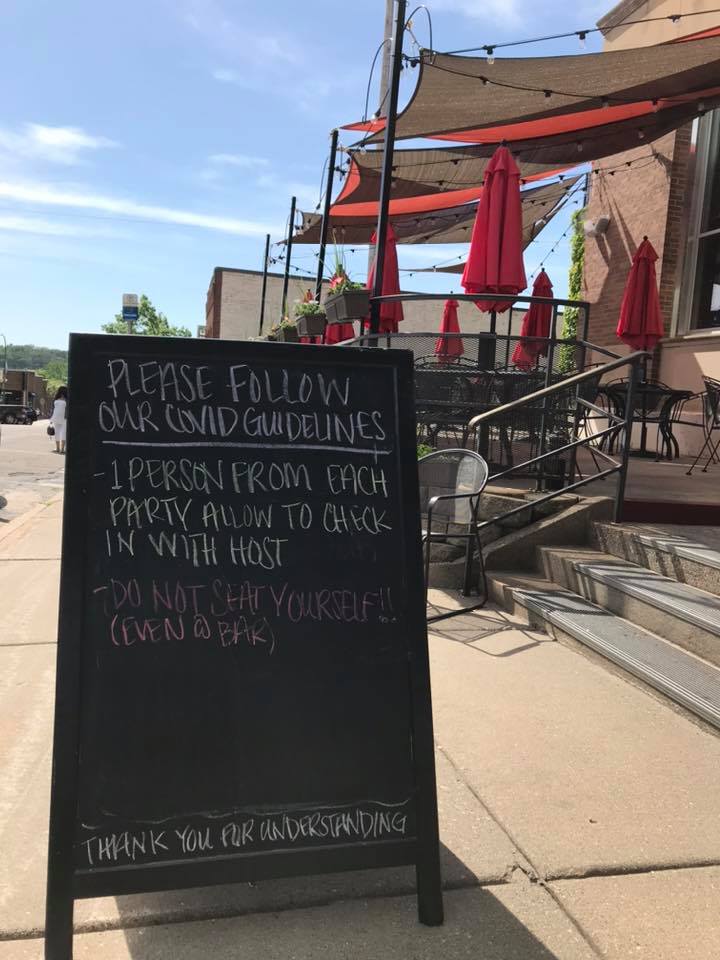 PLEASE FOLLOW
OUR COVID GUIDELINES
- 1 PERSON FROM EACH
PARTY ALLOW TO CHECK
IN WITH HOST
- DO NOT SEAT YOURSELF!!
(EVEN @ BAR)
THANK YOU FOR UNDERSTANDING